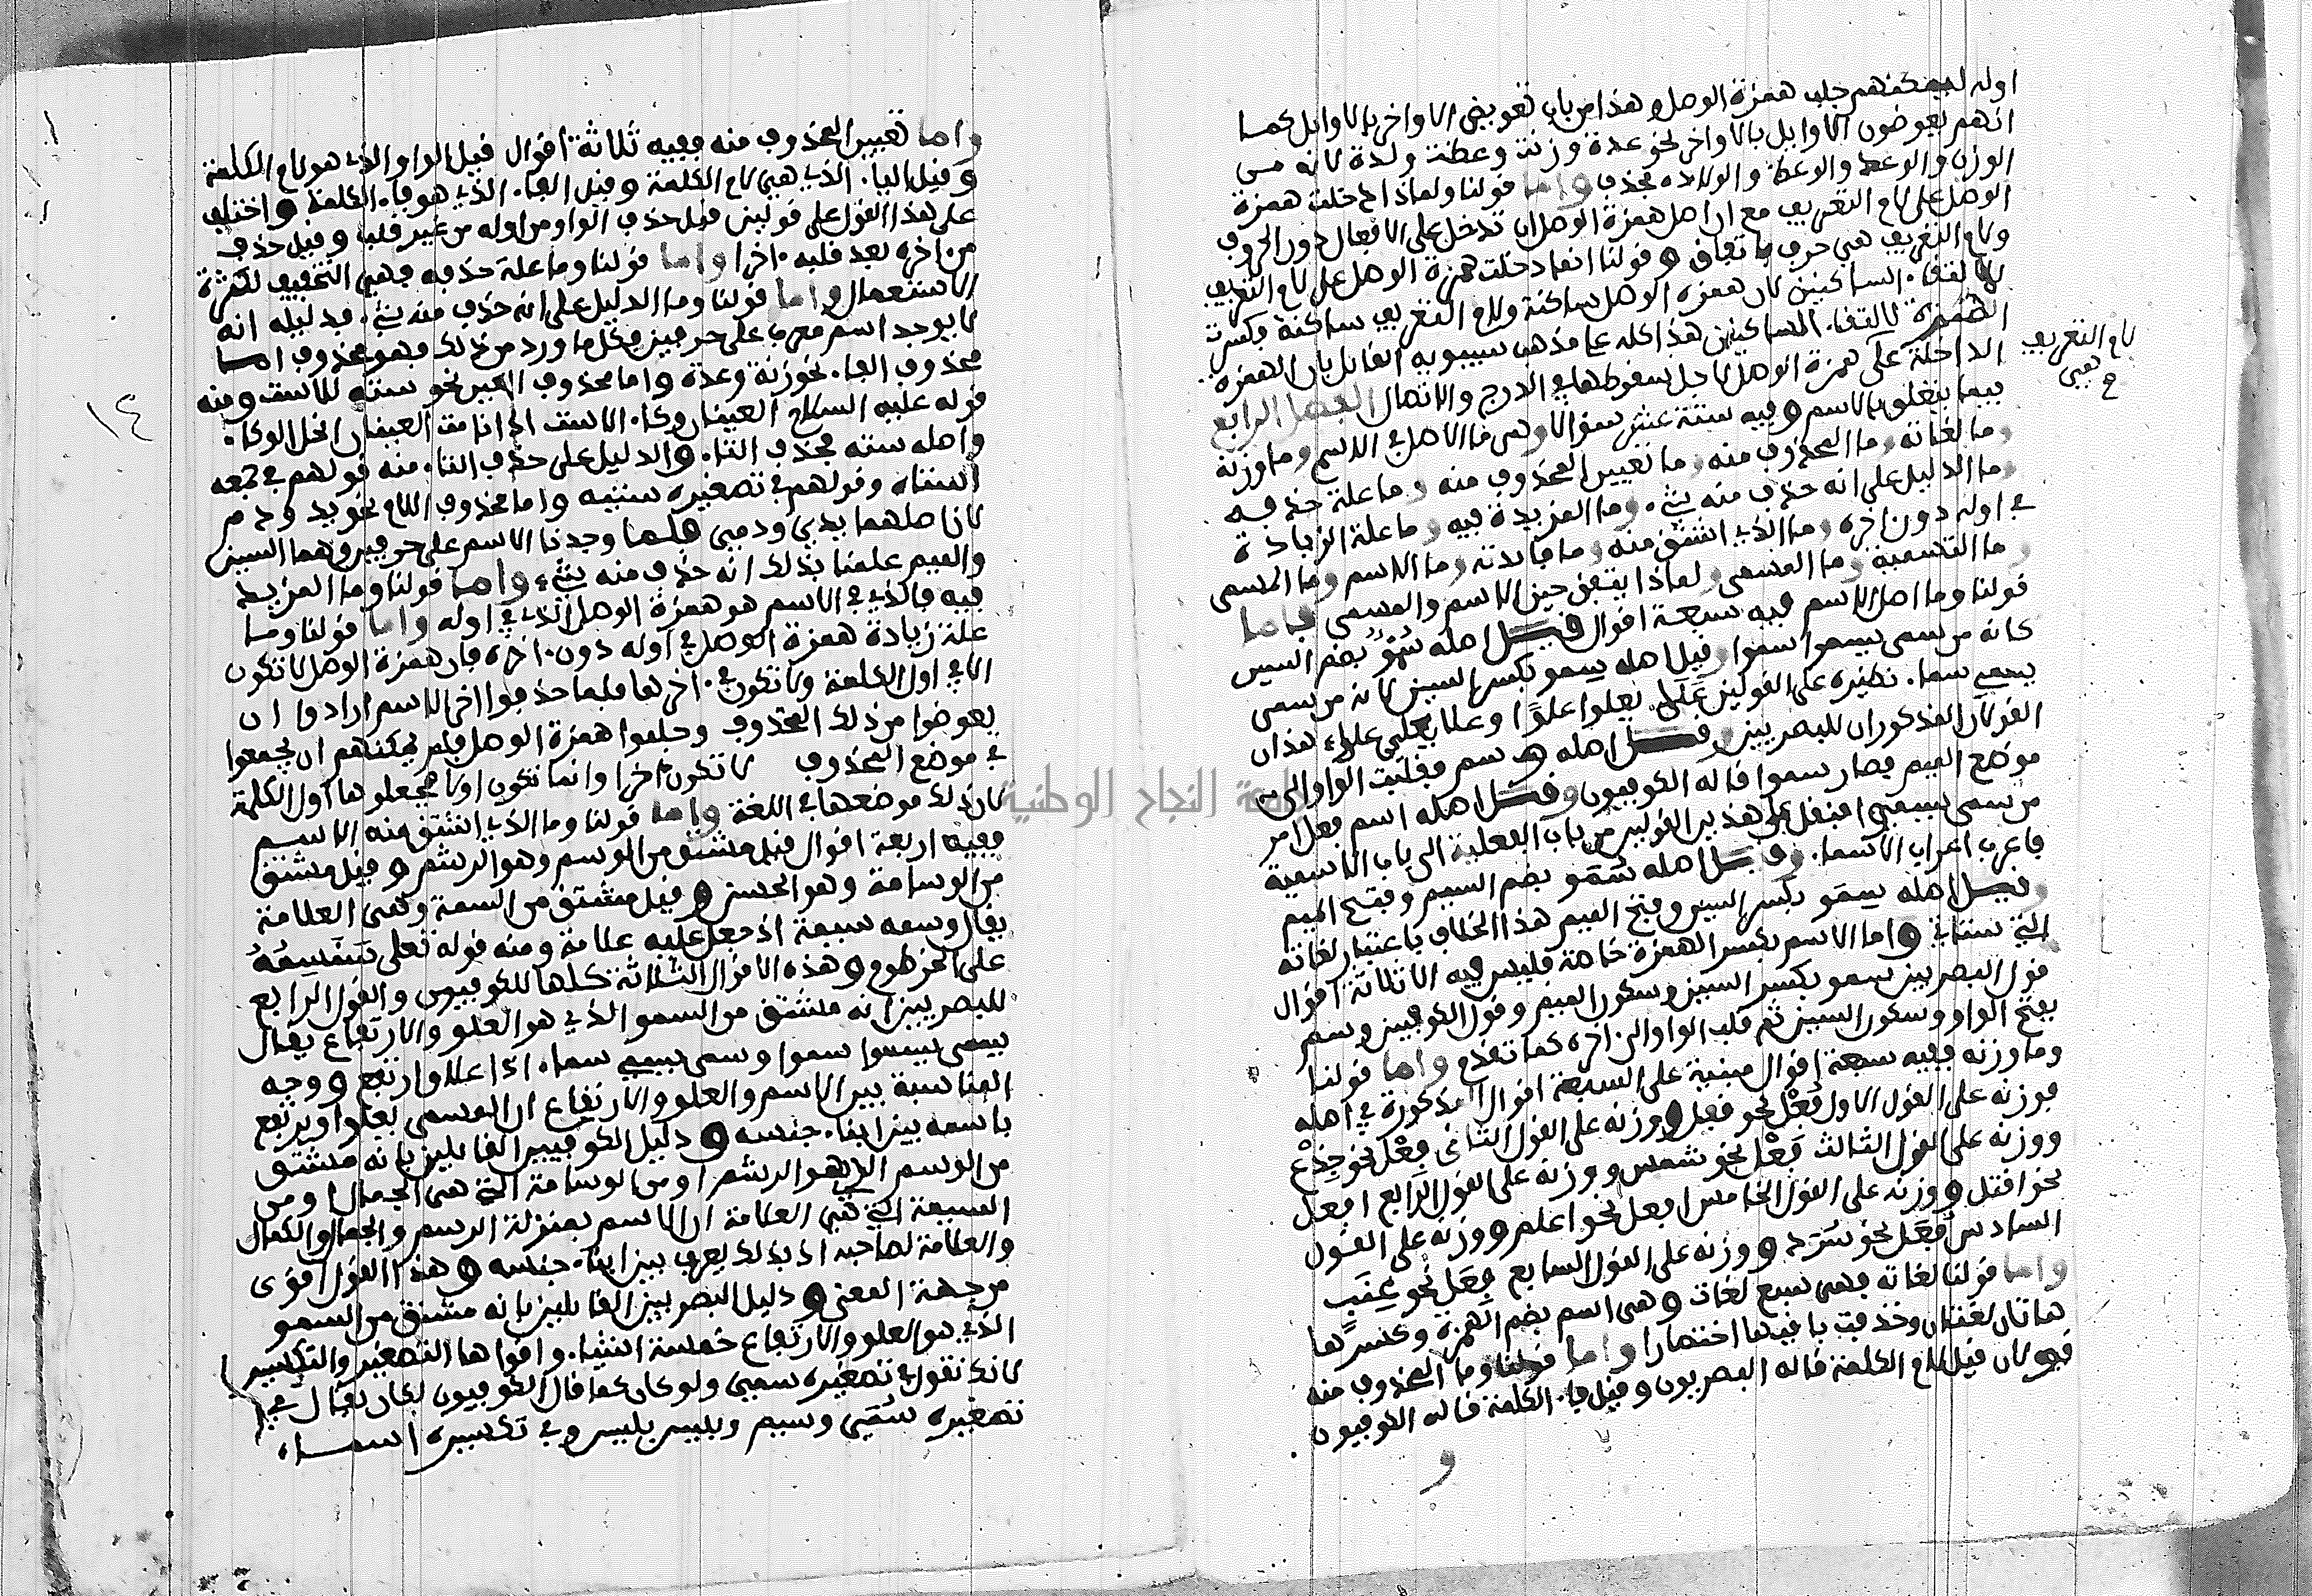 اوله ليمكنهم جلب همزة الوصل وهذا من باب تعويض الاواخر بالاوايل كما
انهم يعوضون الاوايل بالاواخر نحو عدة وزنة وعظة ولدة لانه من
الوزن والوعد والوعظ والولادة فحذف واما قولنا ولماذا دخلت همزة
الوصل على لام التعريف مع ان اصل همزة الوصل ان تدخل على الافعال دون الحروف
ولام التعريف هي حرف باتفاق وقولنا انما دخلت همزة الوصل على لام التعريف
لالتقاء الساكنين لان همزة الوصل ساكنة ولام التعريف ساكنة فكسرت
الهمزة لالتقاء الساكنين هذا كله على مذهب سيبويه القائل بان الهمزة
الداخلة على همزة الوصل لاجل سقوطها في الدرج والاتصال الفصل الرابع
لام التعريف
هي
فيما يتعلق بالاسم وفيه ستة عشر سؤالا وهي ما الاصل في الاسم وما وزنه
وما لغاته وما المحذوف منه وما تعيين المحذوف منه وما علة حذفه
وما الدليل على انه حذف منه شيء وما المزيدة فيه وما علة الزيادة
في اوله دون اخره وما الذي اشتق منه وما فائدته وما الاسم وما المسمى
وما التسمية وما المسمي ولماذا يتفق حين الاسم والمسمى فاما
قولنا وما اصل الاسم فيه سبعة اقوال قيل اصله سُمْوٌ بضم السين
كانه من سمى يسموا سموا وقيل اصله سمو بكسر السين كانه من سمى
يسمى سما نظيره على القولين علا يعلوا علوا وعلا يعلى علاء هذان
القولان المذكوران للبصريين وقيل اصله وسم فقلبت الواو الى
موضع الميم فصار سموا قاله الكوفيون وقيل اصله اسم فعل امر
من سمى يسمى انتقل على هذين القولين من باب الفعلية الى باب الاسمية
فاعرب اعراب الاسماء وقيل اصله سُمَو بضم السين وفتح الميم
وقيل اصله سِمَو بكسر السين وفتح الميم هذا الخلاف باعتبار لغاته
التي ستاتي واما الاسم بكسر الهمزة خاصة فليس فيه الا ثلاثة اقوال
قول البصريين سمو بكسر السين وسكون الميم وقول الكوفيين وسم
بفتح الواو وسكون السين ثم قلب الواو الى اخره كما تقدم واما قولنا
وما وزنه ففيه سبعة اقوال مبنية على السبعة اقوال المذكورة في اصله
فوزنه على القول الاول فُعْل نحو قفل ووزنه على القول الثاني فِعْل نحو جِذْع
ووزنه على القول الثالث فَعْل نحو شمس ووزنه على القول الرابع افعل
نحو اقتل ووزنه على القول الخامس افعل نحو اعلم ووزنه على القول
السادس فُعَل نحو سُرَد ووزنه على القول السابع فِعَل نحو عِنَب
واما قولنا لغاته فهي سبع لغات وهي اسم بضم الهمزة وكسرها
هاتان لغتان وحذفت باقيها اختصارا واما قولنا وما المحذوف منه
فهو لان قيل لام الكلمة قاله البصريون وقيل فاء الكلمة قاله الكوفيون
و
واما تعيين المحذوف منه ففيه ثلاثة اقوال قيل الواو الذي هو لام الكلمة
وقيل الياء الذي هي لام الكلمة وقيل الفاء الذي هو فاء الكلمة واختلف
على هذا القول على قولين قيل حذف الواو من اوله من غير قلب وقيل حذف
من اخره بعد قلبه اخرا واما قولنا وما علة حذفه فهي التخفيف لكثرة
الاستعمال واما قولنا وما الدليل على انه حذف منه شيء فدليله انه
لا يوجد اسم معرب على حرفين وكل ما ورد من ذلك فهو محذوف اما
محذوف الفاء نحو زنة وعدة واما محذوف العين نحو سته للاست ومنه
قوله عليه السلام العينان وكاء الاست اذا نامت العينان انحل الوكاء
١٤
واصله سته فحذف التاء والدليل على حذف التاء منه قولهم في جمعه
استاه وقولهم في تصغيره ستيه واما محذوف اللام نحو يد ودم
لان اصلهما يدي ودمي فلما وجدنا الاسم على حرفين وهما السين
والميم علمنا بذلك انه حذف منه شيء واما قولنا وما المزيد
فيه فالذي في الاسم هو همزة الوصل الذي في اوله واما قولنا وما
علة زيادة همزة الوصل في اوله دون اخره فان همزة الوصل لا تكون
الا في اول الكلمة ولا تكون في اخرها فلما حذفوا اخر الاسم ارادوا ان
يعوضوا من ذلك المحذوف وجلبوا همزة الوصل فلم يمكنهم ان يجمعوا
في موضع المحذوف لا تكون اخرا وانما تكون اولا فيجعلوها اول الكلمة
لان ذلك موضعها في اللغة واما قولنا وما الذي اشتق منه الاسم
ففيه اربعة اقوال قيل مشتق من الوسم وهو الرشم وقيل مشتق
من الوسامة وهو الحسن وقيل مشتق من السمة وهي العلامة
يقال وسمه سيمة اذ جعل عليه علامة ومنه قوله تعلى سَنَسِمُهُ
على الخرطوم وهذه الاقوال الثلاثة كلها للكوفيين والقول الرابع
للبصريين انه مشتق من السمو الذي هو العلو والارتفاع يقال
سمى يسموا سموا وسمى يسمى سما اذا علا وارتفع ووجه
المناسبة بين الاسم والعلو والارتفاع ان المسمى يعلوا ويرتفع
باسمه بين ابناء جنسه ودليل الكوفيين القائلين بانه مشتق
من الوسم الذي هو الرشم او من الوسامة التي هي الجمال او من
السيمة التي هي العلامة ان الاسم بمنزلة الرسم والجمال والكمال
والعلامة لصاحبه اذ بذلك يعرف بين ابناء جنسه وهذا القول اقوى
من جهة المعنى ودليل البصريين القائلين بانه مشتق من السمو
الذي هو العلو والارتفاع خمسة اشياء واقواها التصغير والتكسير
لانك تقول في تصغيره سمي ولو كان كما قال الكوفيون لكان يقال في
تصغيره سُمَي وسيم وفي تكسيره اسماء
جامعة النجاح الوطنية